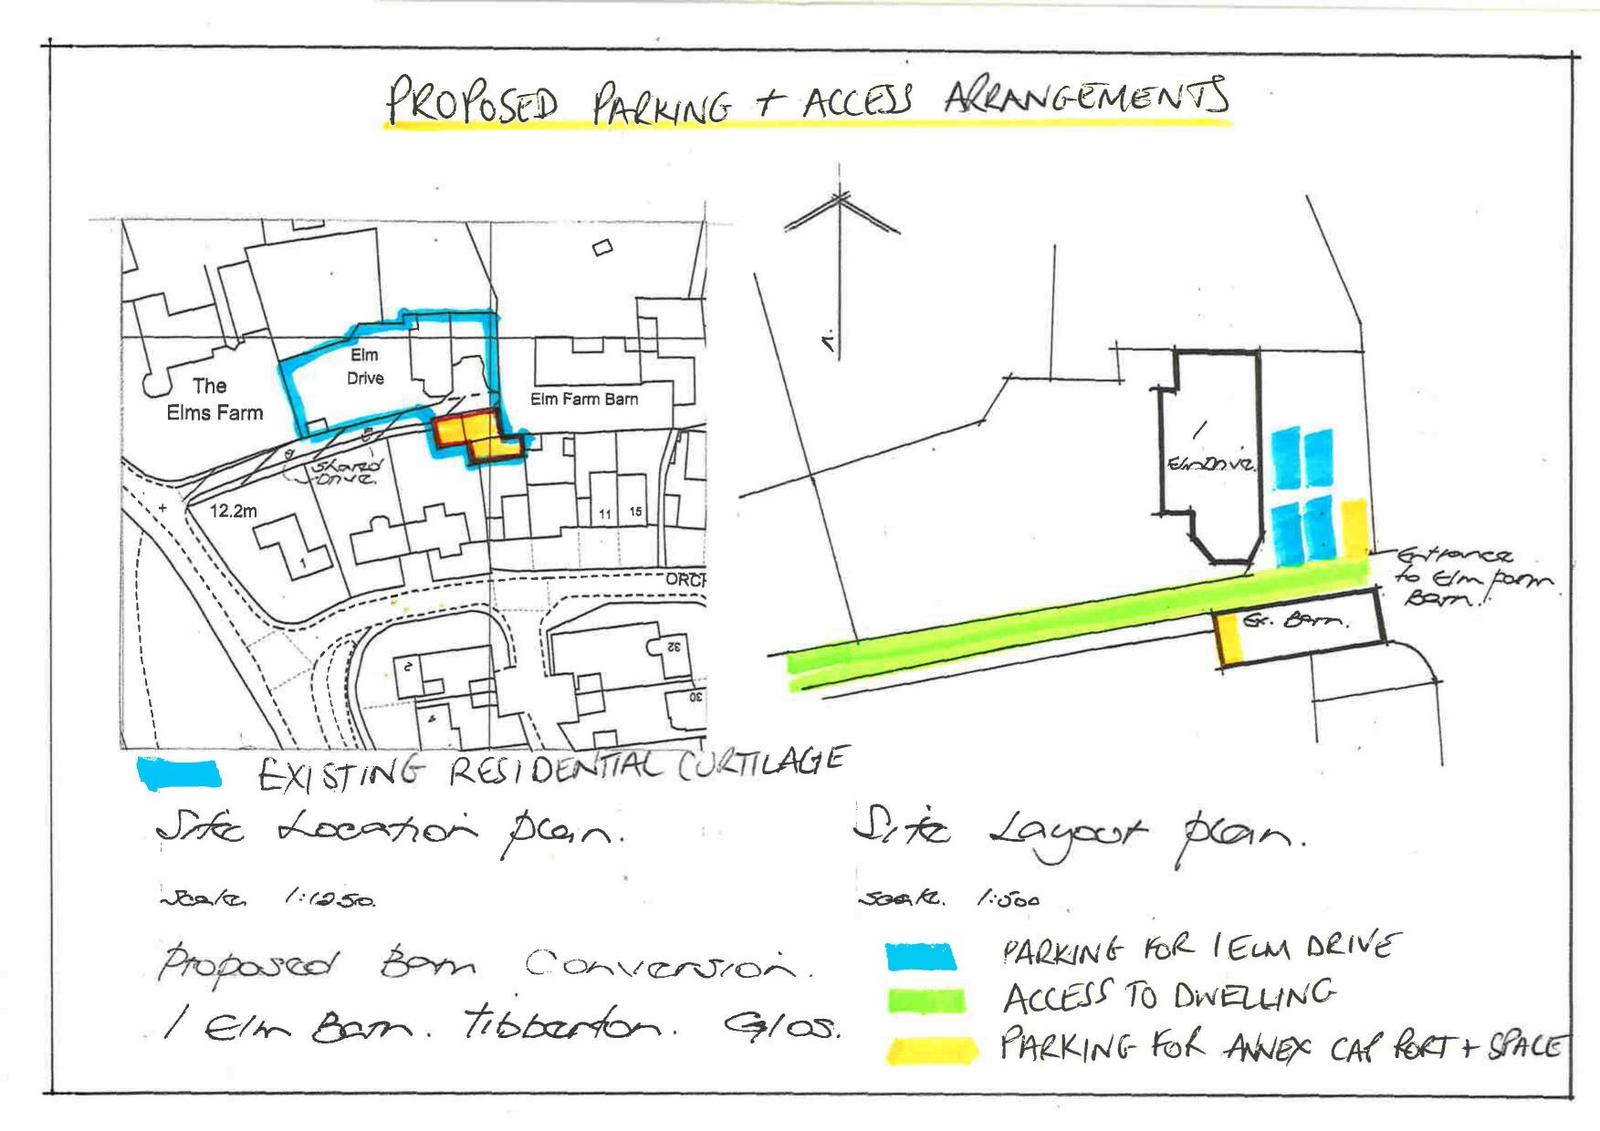 PROPOSED PARKING + ACCESS ARRANGEMENTS
The
Elms Farm
Elm
Drive
Elm Farm Barn
Shared
Drive.
12.2m
1
11
15
ORCH
2
4
32
30
n.
1
Elm Drive.
Entrance
to Elm Farm
Barn.
Ex. Barn.
EXISTING RESIDENTIAL CURTILAGE
Site Location plan.
scale 1:1250.
Proposed Barn Conversion.
1 Elm Barn. Tibberton. Glos.
Site Layout plan.
scale. 1:500
PARKING FOR 1 ELM DRIVE
ACCESS TO DWELLING
PARKING FOR ANNEX CAR PORT + SPACE